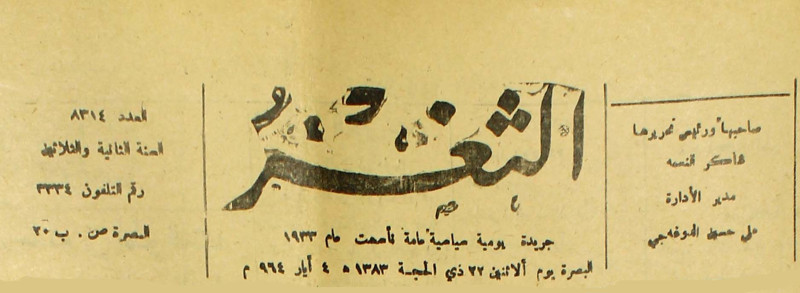 صاحبها ورئيس تحريرها
شاكر النعمه
مدير الأدارة
علي حسين الدوغجي
الثغر
جريدة يومية سياسية عامة تأسست عام ١٩٣٣
البصرة يوم ألاثنين ٢٢ ذي الحجة ١٣٨٣ ه ٤ أيار ٩٦٤ م
العدد ٨٣١٤
السنة الثانية والثلاثين
رقم التلفون ٣٣٣٤
البصرة ص . ب ٢٠